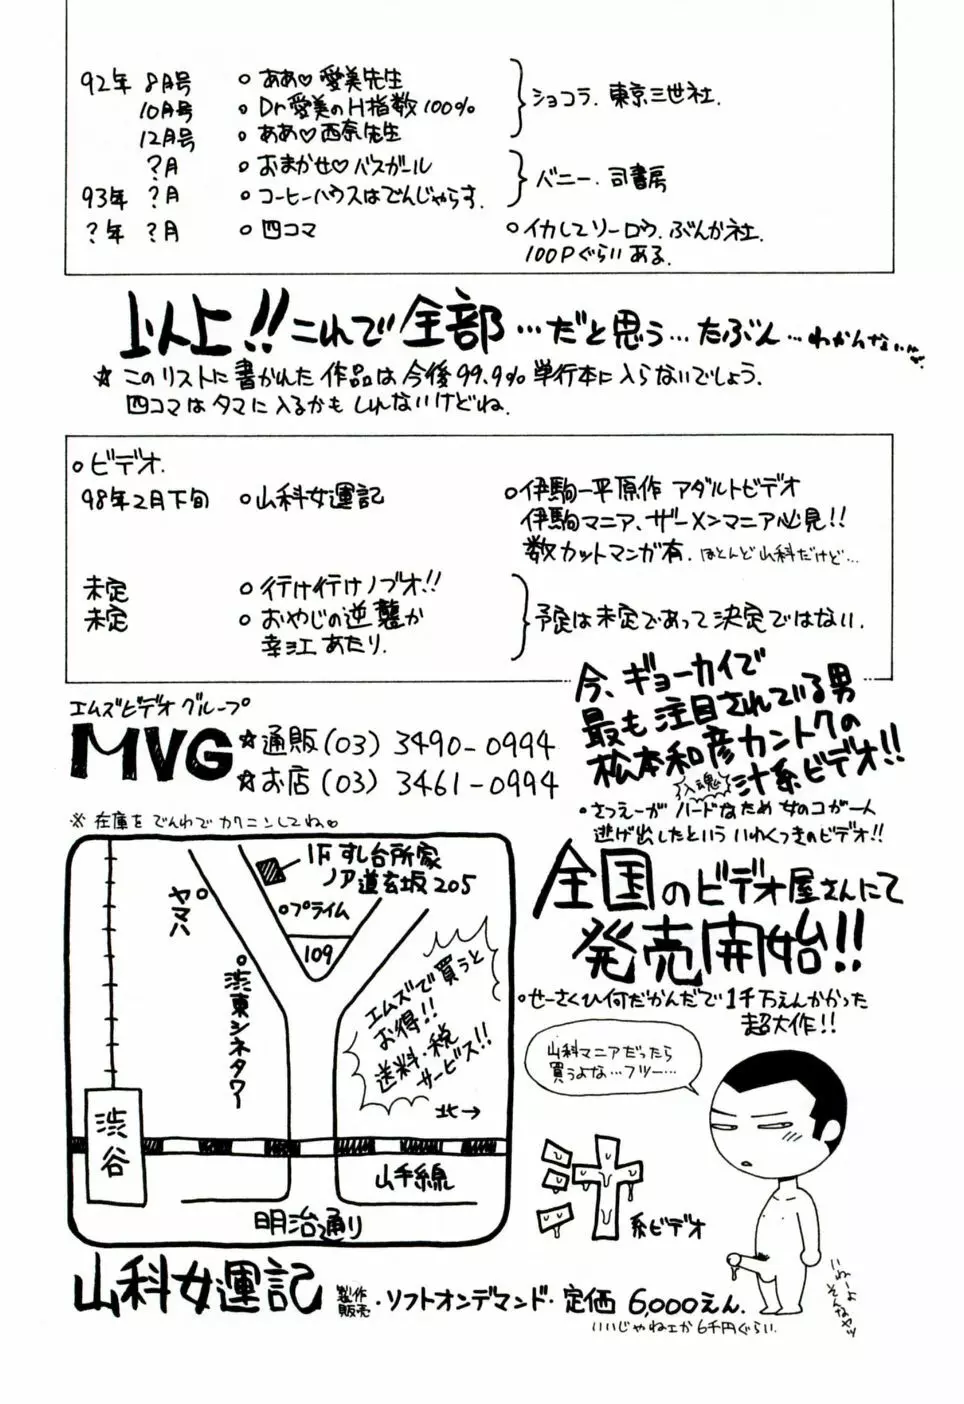 92年 8月号 ○ ああ♡愛美先生
10月号 ○ Dr愛美のH指数100%
12月号 ○ ああ♡西奈先生
ショコラ. 東京三世社.
?月 ○ おまかせ♡バスガール
93年 ?月 ○ コーヒーハウスはでんじゃらす.
バニー. 司書房
?年 ?月 ○ 四コマ ○ イカしてソーロウ. ぶんか社.
100Pぐらいある.
以上!!これで全部…だと思う…たぶん…わかんない
☆このリストに書かれた作品は今後99.9%単行本に入らないでしょう.
四コマはタマに入るかもしれないけどね.
○ビデオ.
98年2月下旬 ○山科女運記 ○伊駒一平原作 アダルトビデオ
伊駒マニア、ザーメンマニア必見!!
数カットマンガ有. ほとんど山科だけど…
未定 ○行け行けノブオ!!
未定 ○おやじの逆襲か
幸江あたり.
予定は未定であって決定ではない.
エムズビデオグループ
MVG ☆通販(03)3490-0994
☆お店(03)3461-0994
※在庫をでんわでカクニンしてね♡
今、ギョーカイで
最も注目されている男
松本和彦カントクの
入魂 汁系ビデオ!!
・さつえーがハードなため女のコが一人
逃げ出したといういわくつきのビデオ!!
全国のビデオ屋さんにて
発売開始!!
○せーさくひ何だかんだで1千万えんかかった
超大作!!
1Fすし台所家
ノア道玄坂205
ヤマハ
○プライム
109
渋東シネタワー
エムズで買うと
お得!!
送料・税
サービス!!
北→
渋谷
山手線
明治通り
山科マニアだったら
買うよな…フツー…
汁系ビデオ
いねーよ
そんなヤツ
山科女運記 製作販売・ソフトオンデマンド・定価 6,000えん.
いいじゃねェか6千円ぐらい.